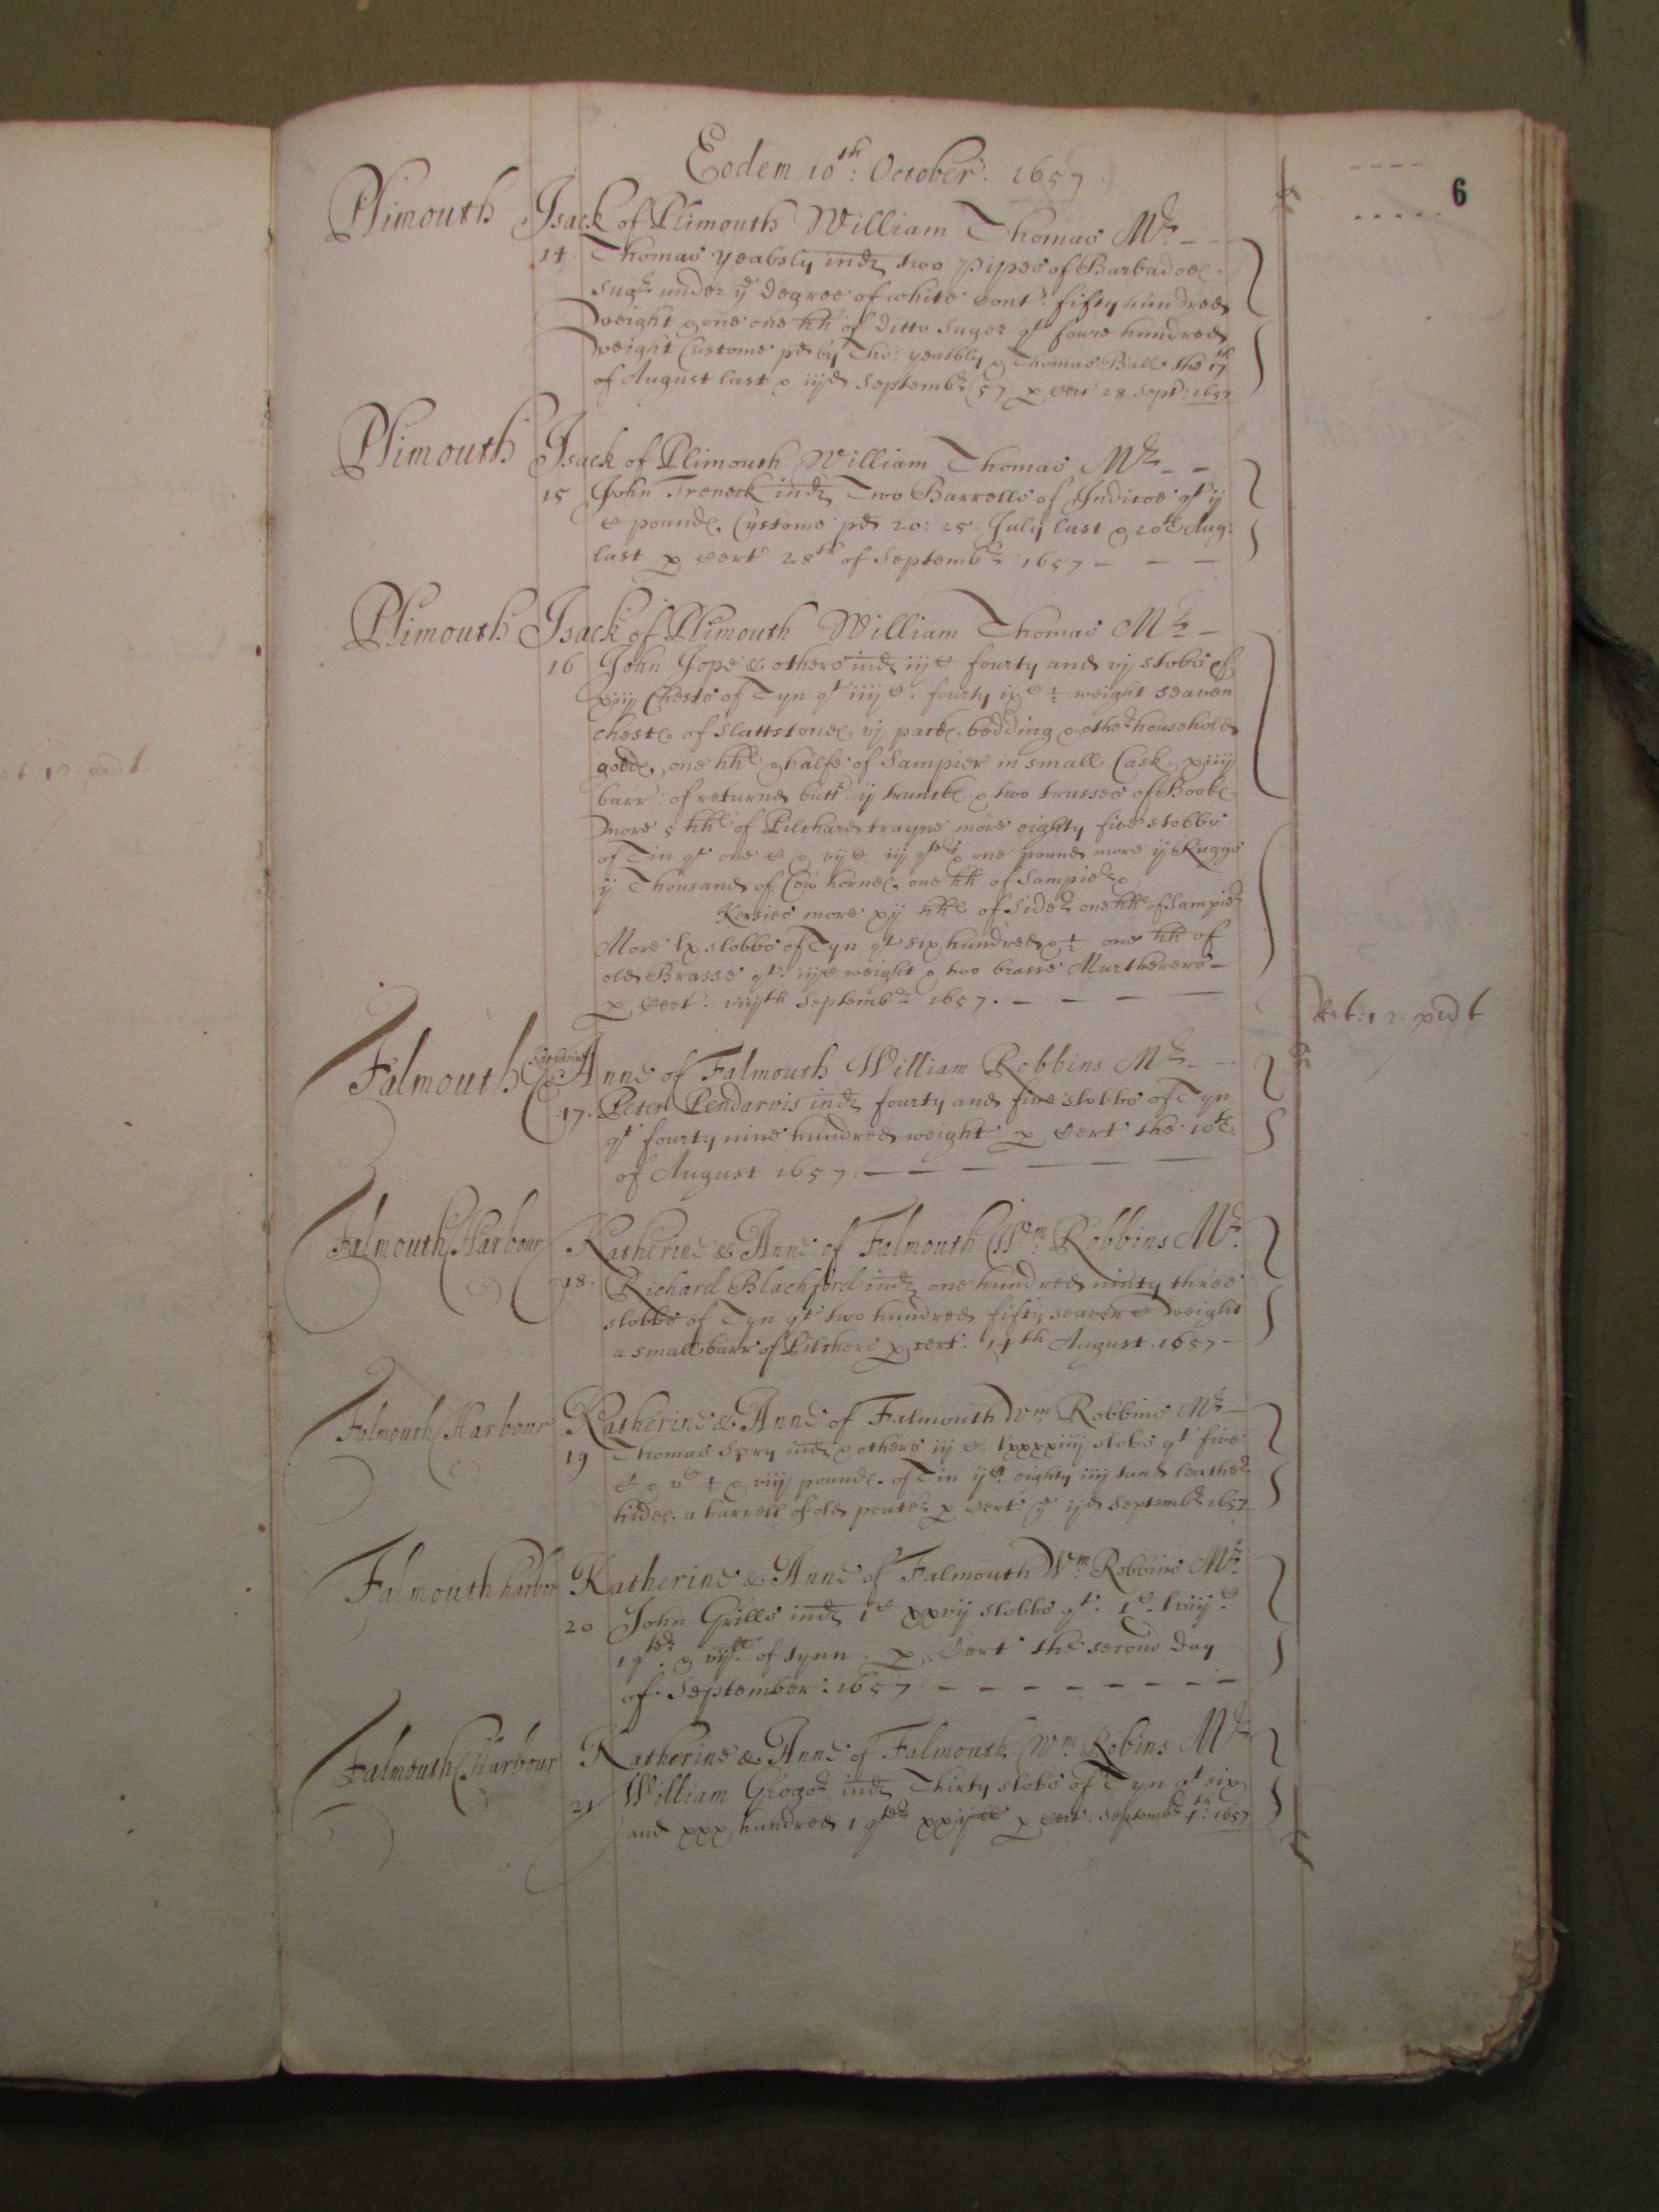 6
Eodem 10th: October. 1657
Plimouth Isack of Plimouth William Thomas Mr
14 Thomas Yeabsly inde two pipes of Barbadoes
Sugr under ye degree of white cont: fifty hundred
weight & one hh of ditto Suger qt foure hundred
weight Custome pd by Tho: Yeabsly & Thomas Ball the 17th
of August last & iijd Septembr 57 p Cert 28 Sept: 1657
Plimouth Isack of Plimouth William Thomas Mr
15 John Treneck inde Two Barrells of Indicoe qt ij
C pounde, Custome pd 20: 25: July last & 20th Aug:
last p Cert 28th of Septembr 1657
Plimouth Isack of Plimouth William Thomas Mr
16 John Jope & others inde iij C fourty and vj slobs of
xiij Chests of Tyn qt iiij C. fourty ix C ½ weight seaven
cheste of Slattstone, vj packe, bedding & other household
goode, one hhd & halfe of Sampier in small Cask, xiiij
barr: of returned butt: ij truncke & two trusses of Booke
More 5 hhd of Pilchard trayne more eighty five slobbs
of Tin qt one C & vij C iij qters & one pound more ij Ruggs
ij Thousand of Cow hornes, one hh of Sampier &
Kersies more xij hhd of Sider one hhd of Sampier
More lx slobbs of Tyn qt six hundred & ½ one hh of
old Brasse qt: iijC weight & two brasse Murtherers
p Cert: viijth Septembr 1657.
Ret: 12 pd t
Falmouth Katherine & Anne of Falmouth William Robbins Mr
17. Peter Pendarvis inde fourty and five slobbs of Tyn
qt fourty nine hundred weight p Cert the 10th
of August 1657
Falmouth Harbour Katherine & Anne of Falmouth Wm Robbins Mr
18. Richard Blachford inde one hundred ninty three
slobbs of Tyn qt two hundred fifty seaven C weight
a small barr of Pilchers p cert: 14th August. 1657
Falmouth Harbour Katherine & Anne of Falmouth Wm Robbins Mr
19 Thomas Spry inde & others iij C. lxxxxiiij slobs qt five
C & v C ½ & viij pounde. of Tin ij C. eighty iiij tand leather
hides, a barrell of old pouter p Cert: ye ijd Septembr 1657
Falmouth harbor Katherine & Anne of Falmouth Wm Robbins Mr
20 John Grills inde 1 C xxvij slobbs qt. 1 C. lviij C
1 qter & vij li of tynn. p Cert the second day
of September: 1657
Falmouth Harbour Katherine & Anne of Falmouth Wm Robins Mr
21 William Gregor inde Thirty slobs of Tyn qt six
and xxx hundred 1 qter xxij li p Cert: Septembr 4th: 1657